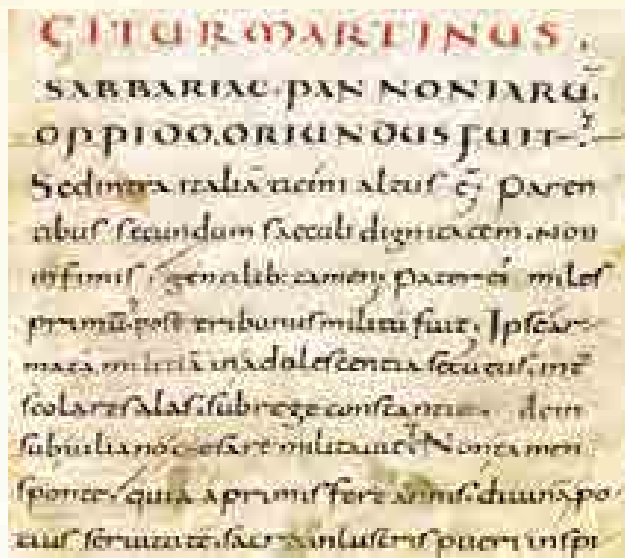 GITUR MARTINUS.
SABBARIAE. PANNONIARŪ.
OPPIDO. ORIUNDUS FUIT.
Sed intra italiā ticini altus ē; paren
tibus secundum saeculi dignitatem. non
infimis gentilib: tamen; pater ei miles
primū. post tribunus militū fuit. Ipse ar
matā militiā in adolescentia secutus. int̄
scolares alas. sub rege constantio. dein
sub iuliano cesare militauit; Non tamen
sponte. quia a primis fere annis. diuinā po
tius seruitutē. sacra inlustris pueri inspi